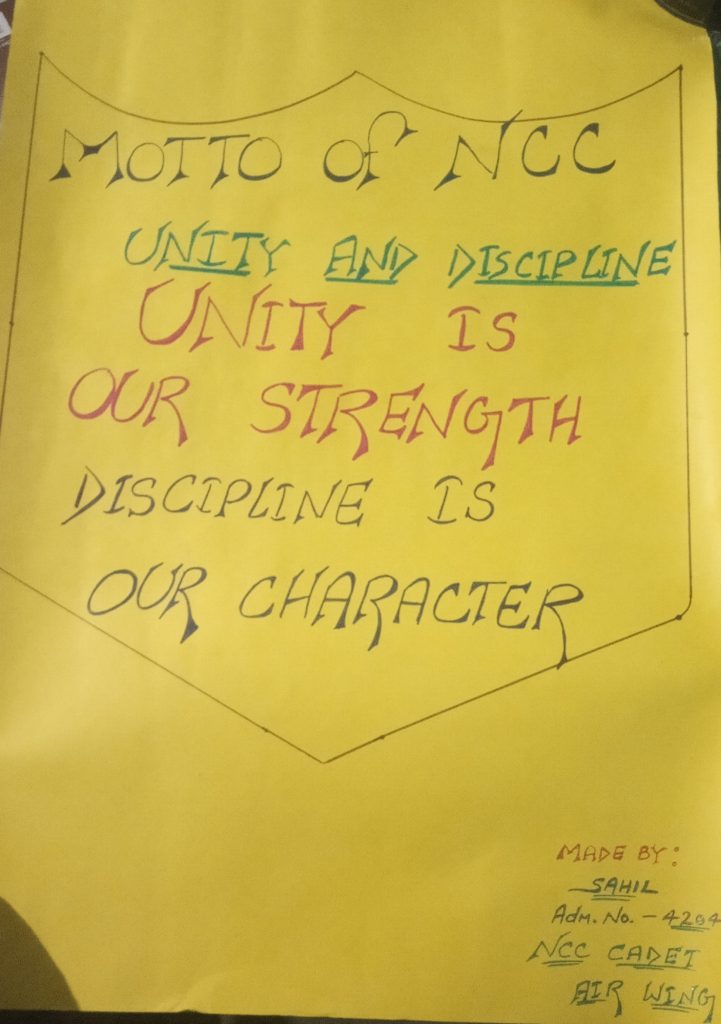 MOTTO of NCC
UNITY AND DISCIPLINE
UNITY IS
OUR STRENGTH
DISCIPLINE IS
OUR CHARACTER
MADE BY:
SAHIL
Adm. No. - 4204
NCC CADET
AIR WING